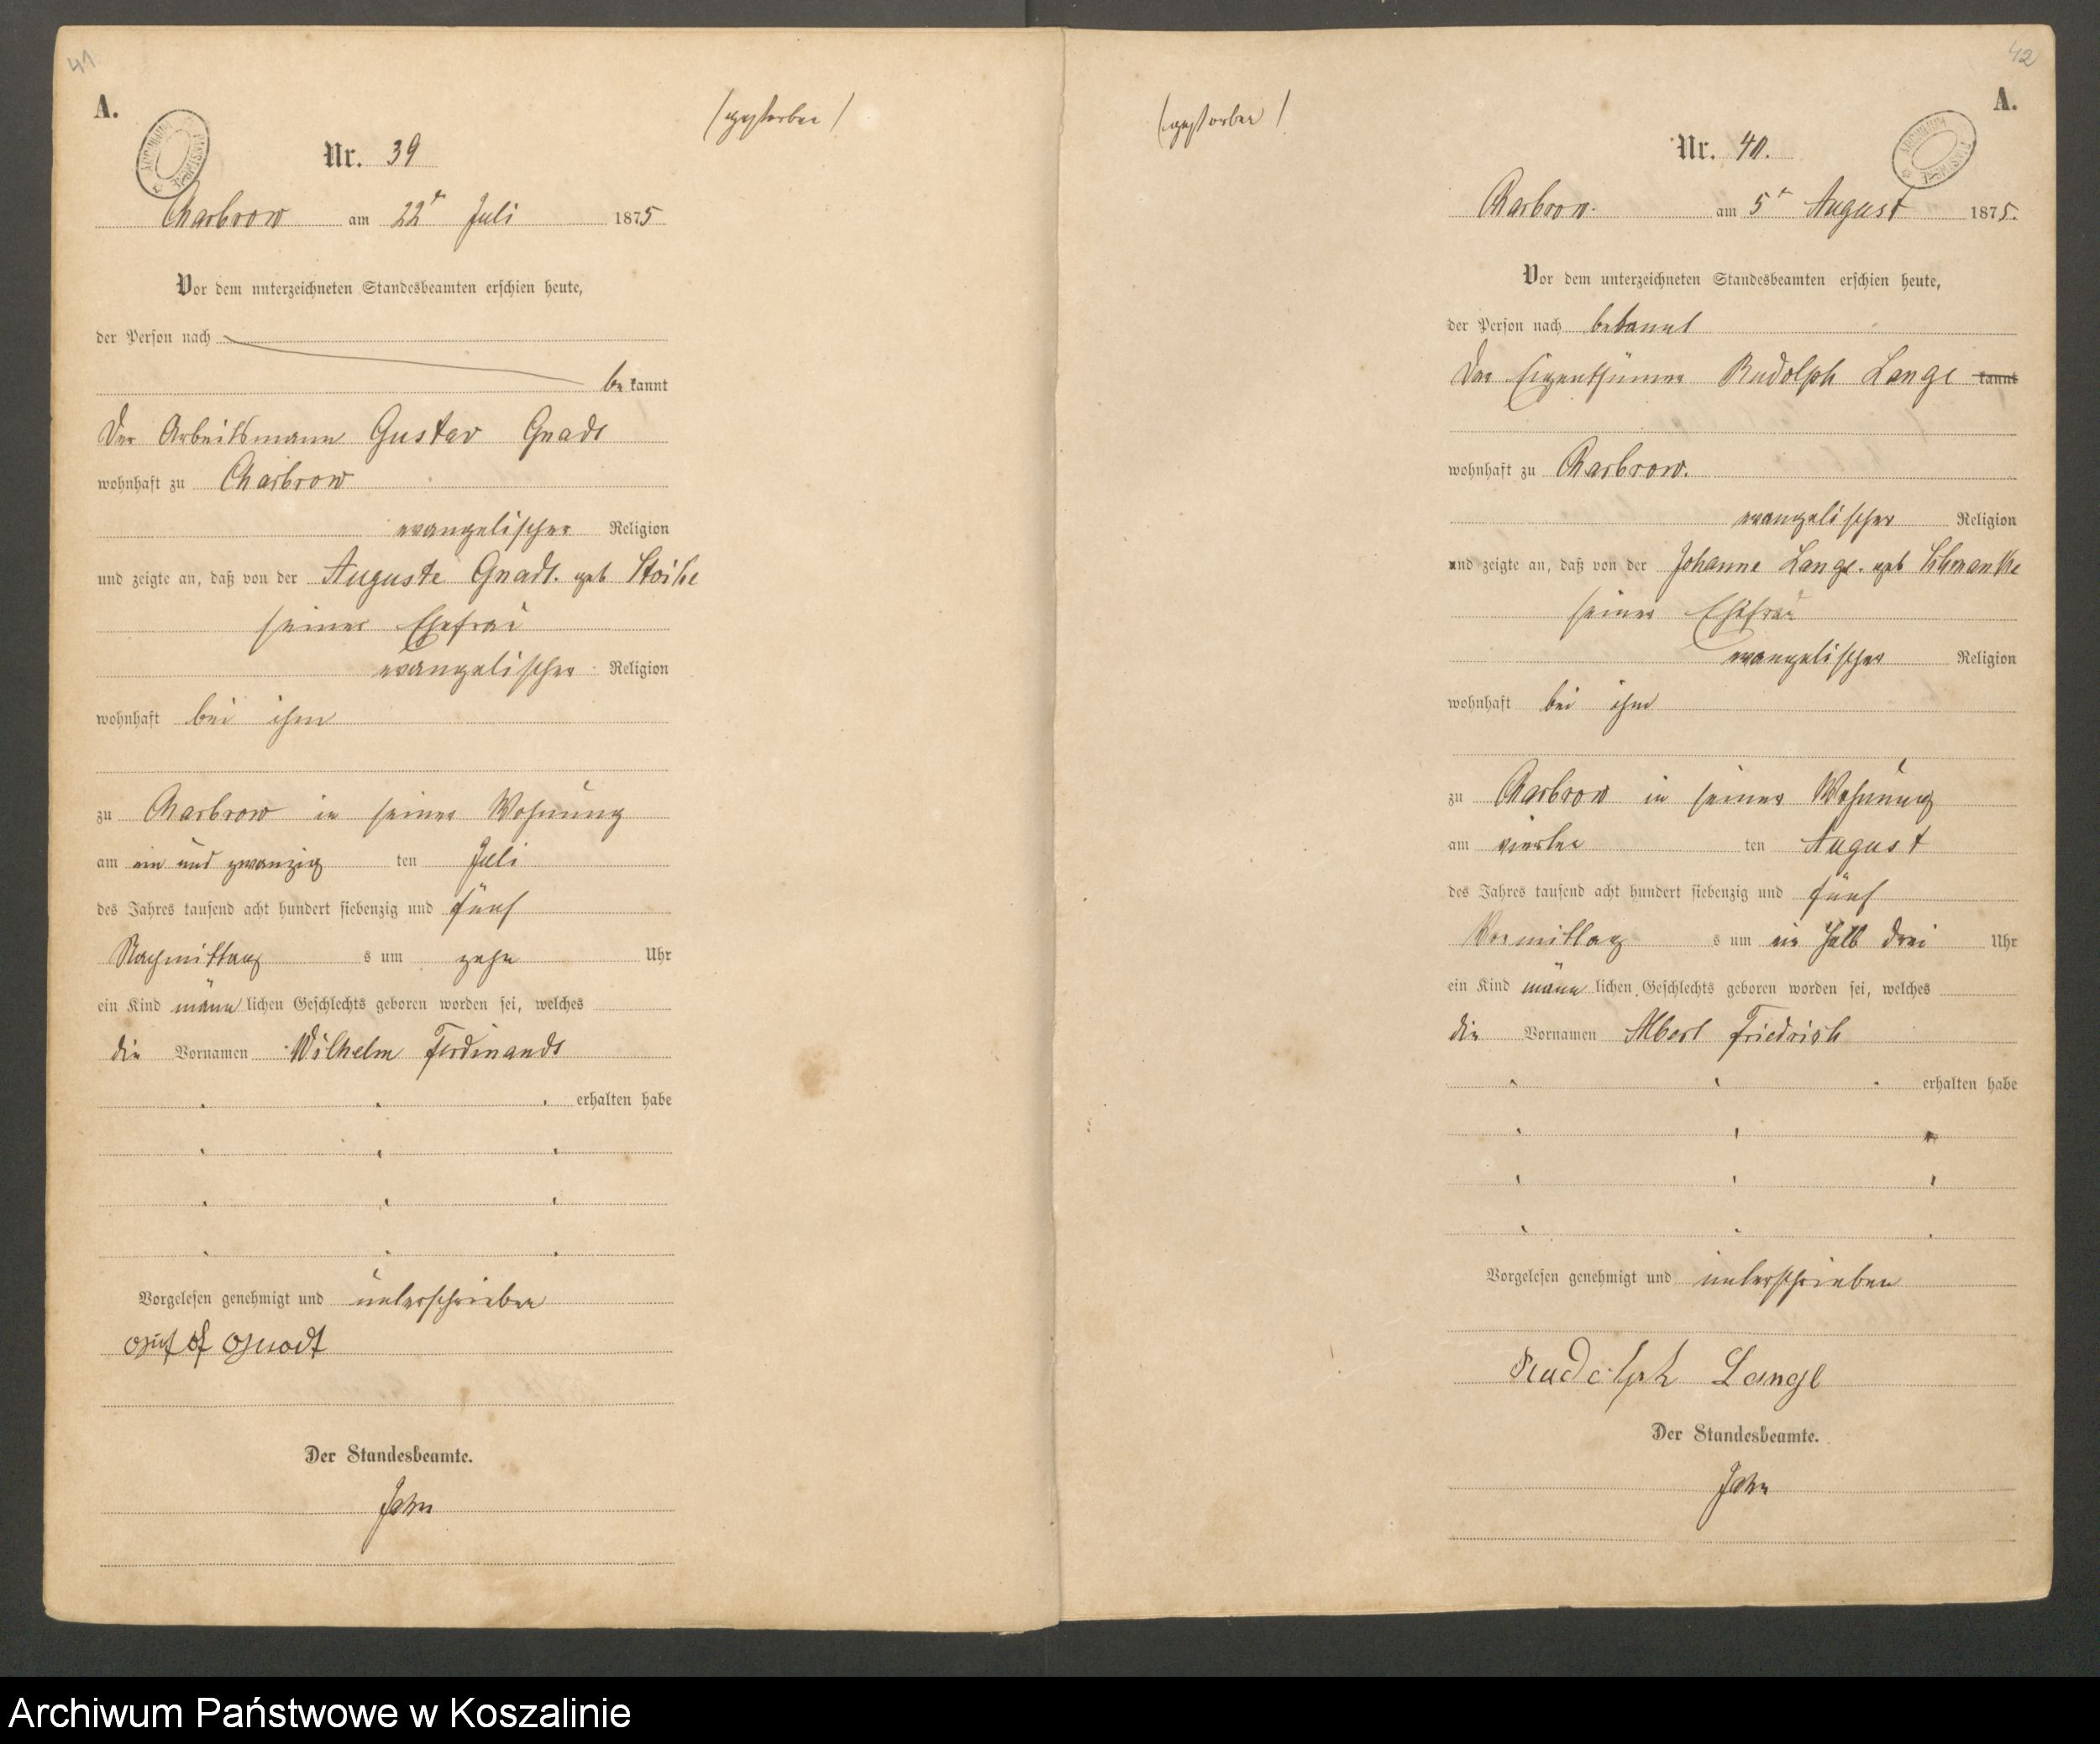 41
A.
(gestorben)
Nr. 39
Charbrow am 22t Juli 1875
Vor dem unterzeichneten Standesbeamten erschien heute,
der Person nach
be kannt
Der Arbeitsmann Gustav Gnadt
wohnhaft zu Charbrow
evangelischer Religion
und zeigte an, daß von der Auguste Gnadt. geb Stoike
seiner Ehefrau
evangelischer Religion
wohnhaft bei ihm
zu Charbrow in seiner Wohnung
am ein und zwanzig ten Juli
des Jahres tausend acht hundert siebenzig und fünf
Nachmittag s um zehn Uhr
ein Kind männ lichen Geschlechts geboren worden sei, welches
die Vornamen Wilhelm Ferdinandt
erhalten habe
Vorgelesen genehmigt und unterschrieben
Gnodt
Der Standesbeamte.
Jahn
42
A.
(gestorben)
Nr. 40.
Charbrow. am 5t August 1875.
Vor dem unterzeichneten Standesbeamten erschien heute,
der Person nach bekannt
Der Eigenthümer Rudolph Lange kannt
wohnhaft zu Charbrow.
evangelischer Religion
und zeigte an, daß von der Johanne Lange. geb Schwanke
seiner Ehefrau
evangelischer Religion
wohnhaft bei ihm
zu Charbrow in seiner Wohnung
am vierten ten August
des Jahres tausend acht hundert siebenzig und fünf
Vormittag s um ein halb drei Uhr
ein Kind männ lichen Geschlechts geboren worden sei, welches
die Vornamen Albert Friedrich
erhalten habe
Vorgelesen genehmigt und unterschrieben
Rudolph Lange
Der Standesbeamte.
Jahn
Archiwum Państwowe w Koszalinie